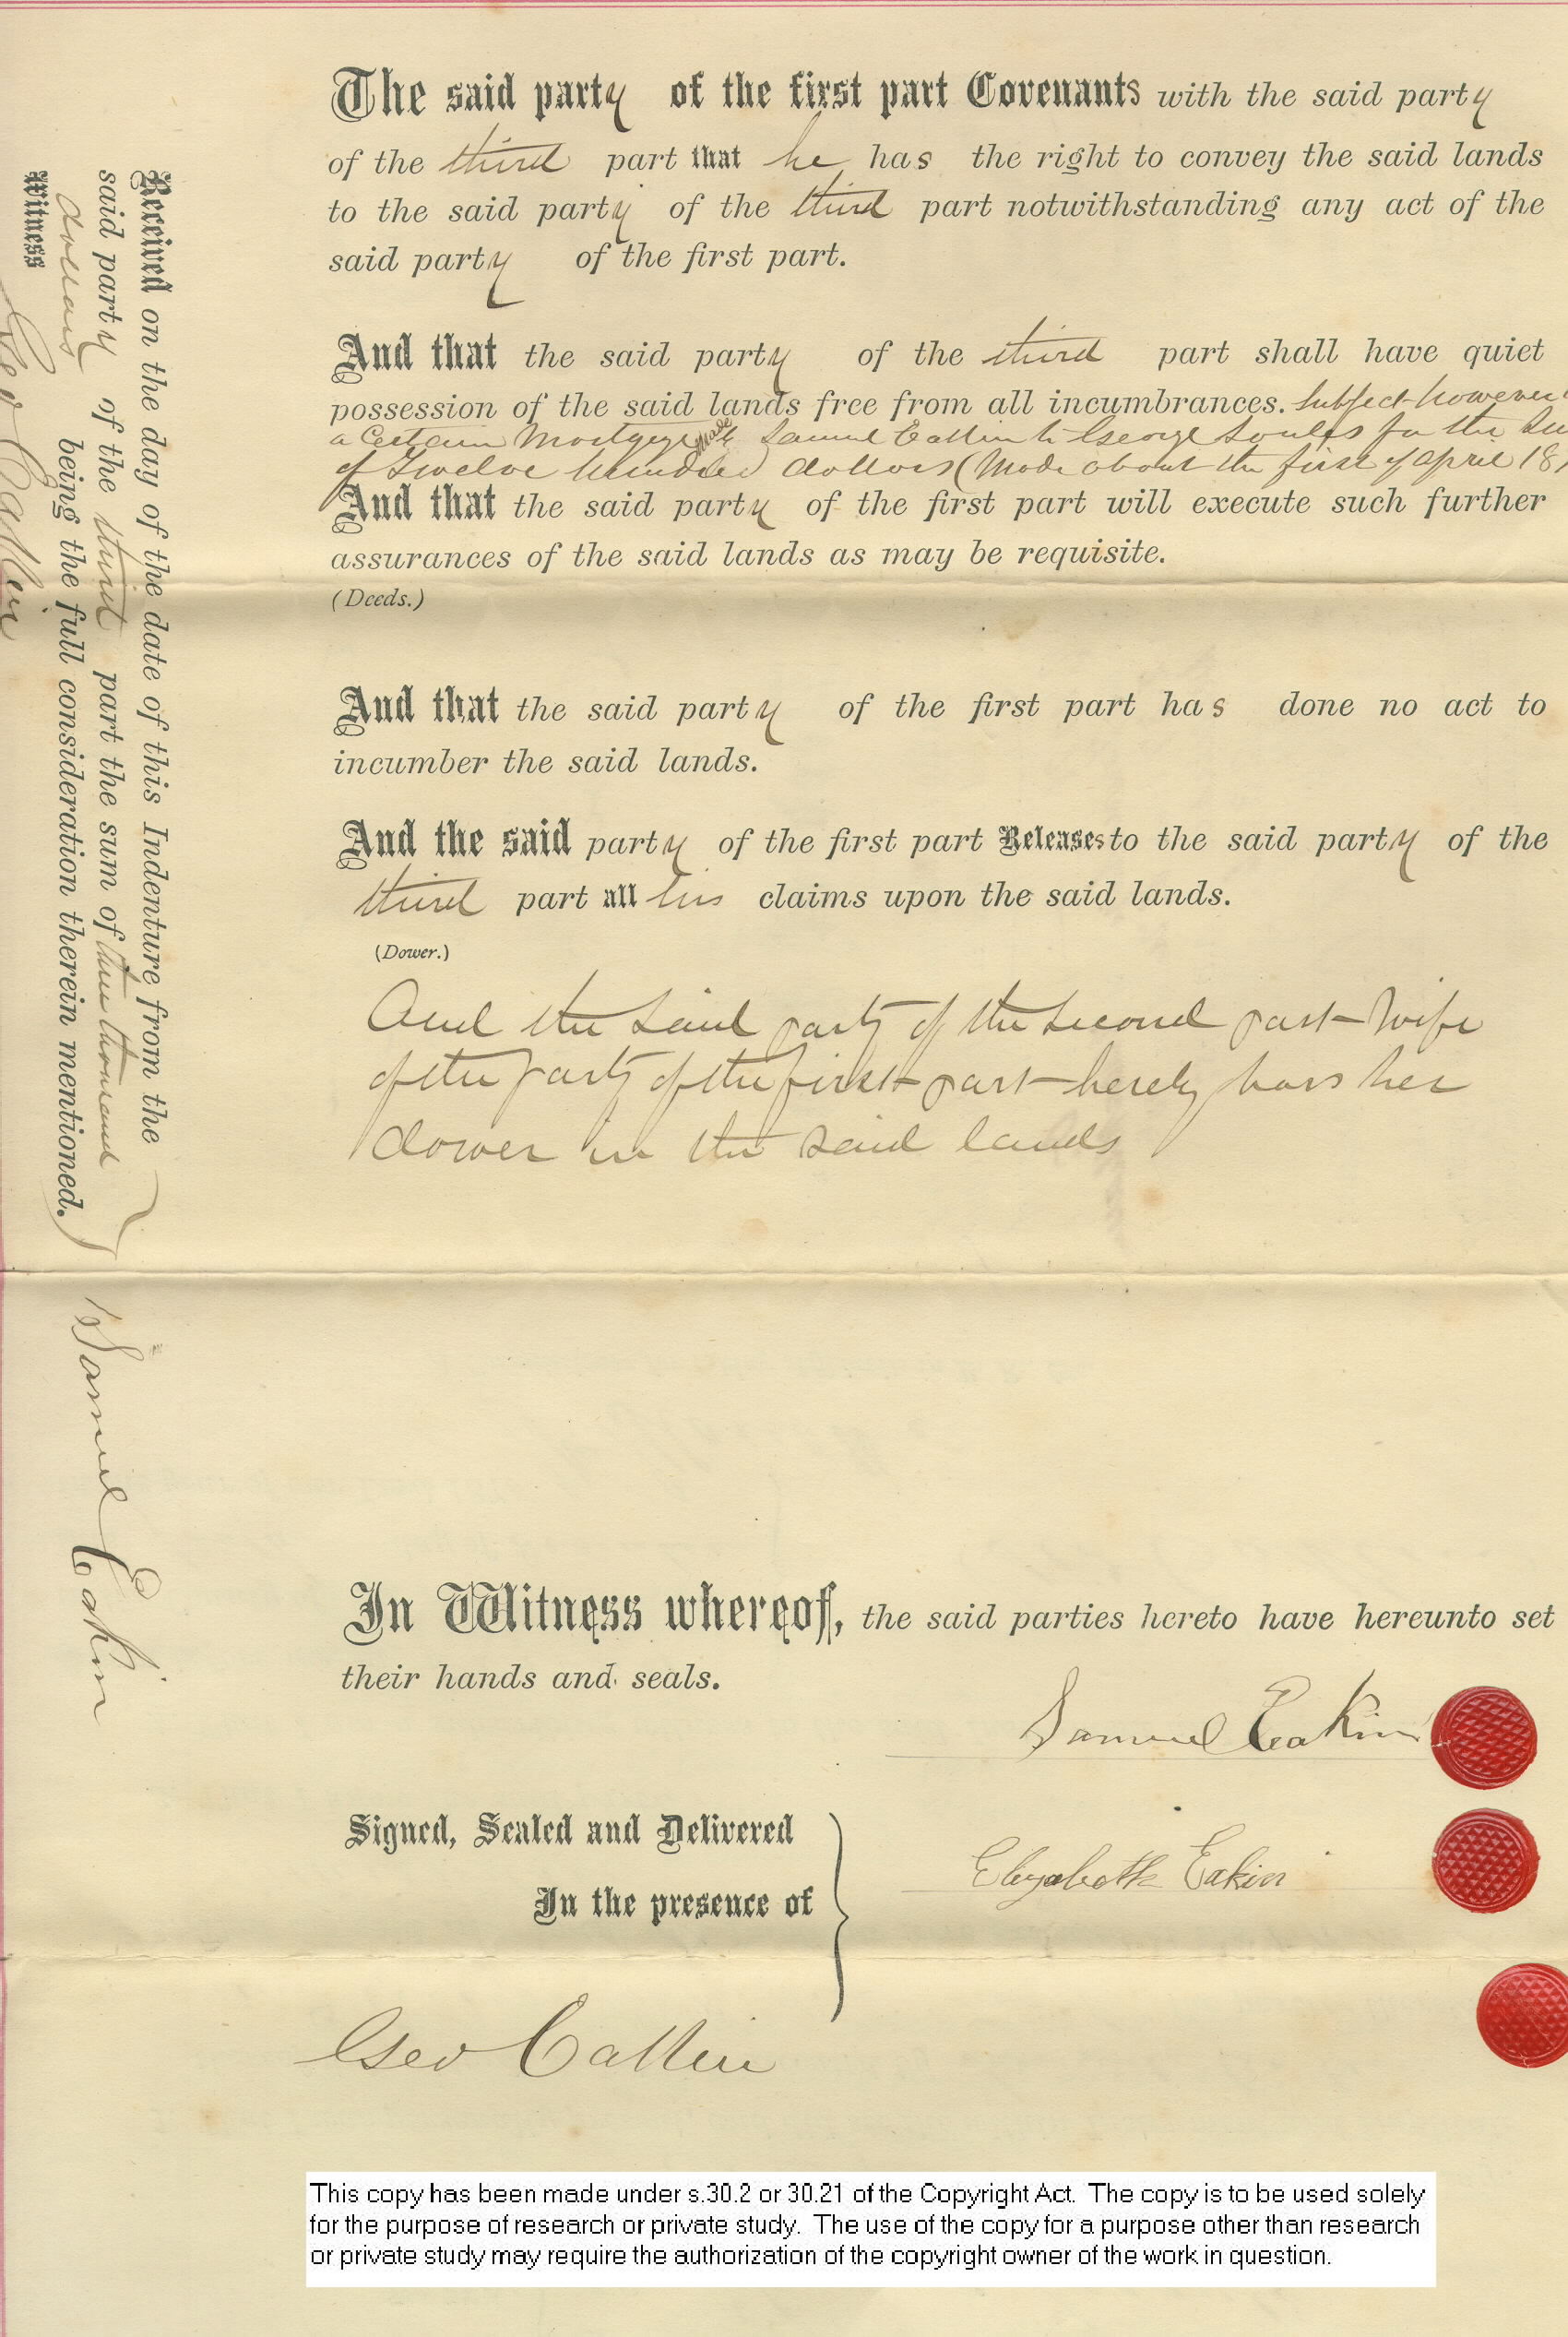 The said party of the first part Covenants with the said party
of the third part that he has the right to convey the said lands
to the said party of the third part notwithstanding any act of the
said party of the first part.
And that the said party of the third part shall have quiet
possession of the said lands free from all incumbrances. Subject however
a Certain Mortgage made Samuel to George Soules for the
of Twelve hundred dollars (Made about the first of April 18
And that the said party of the first part will execute such further
assurances of the said lands as may be requisite.
(Deeds.)
And that the said party of the first part has done no act to
incumber the said lands.
And the said party of the first part Releases to the said party of the
third part all his claims upon the said lands.
(Dower.)
And the said party of the second part Wife
of the party of the first part hereby bars her
dower in the said lands
In Witness whereof, the said parties hereto have hereunto set
their hands and seals.
Samuel Eakin
Signed, Sealed and Delivered
In the presence of
Elizabeth Eakin
Geo Catlin
Received on the day of the date of this Indenture from the
said party of the third part the sum of three thousand
dollars being the full consideration therein mentioned.
Witness
Geo Catlin
Samuel Eakin
This copy has been made under s.30.2 or 30.21 of the Copyright Act. The copy is to be used solely
for the purpose of research or private study. The use of the copy for a purpose other than research
or private study may require the authorization of the copyright owner of the work in question.